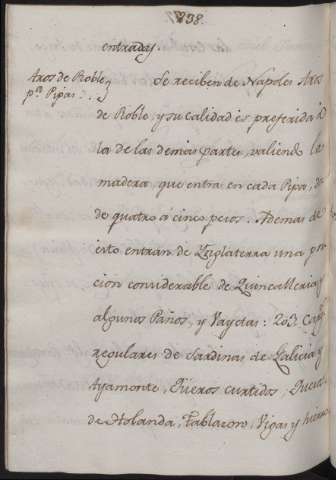 V38.
entradas.
Aros de Roble
pª Pipas.
Se reciben de Napoles Aros
de Roble, y su calidad es preferida à
la de las demas partes, valiendo la
madera que entra en cada Pipa, de
de quatro à cinco pesos. Ademas de
esto entran de Ynglaterra una por
cion considerable de Quincalleria, y
algunos Paños, y Vayetas:
regulares de sardinas de Galicia y
Ayamonte, Cueros curtidos,
de Holanda, Tablazon, Vigas y